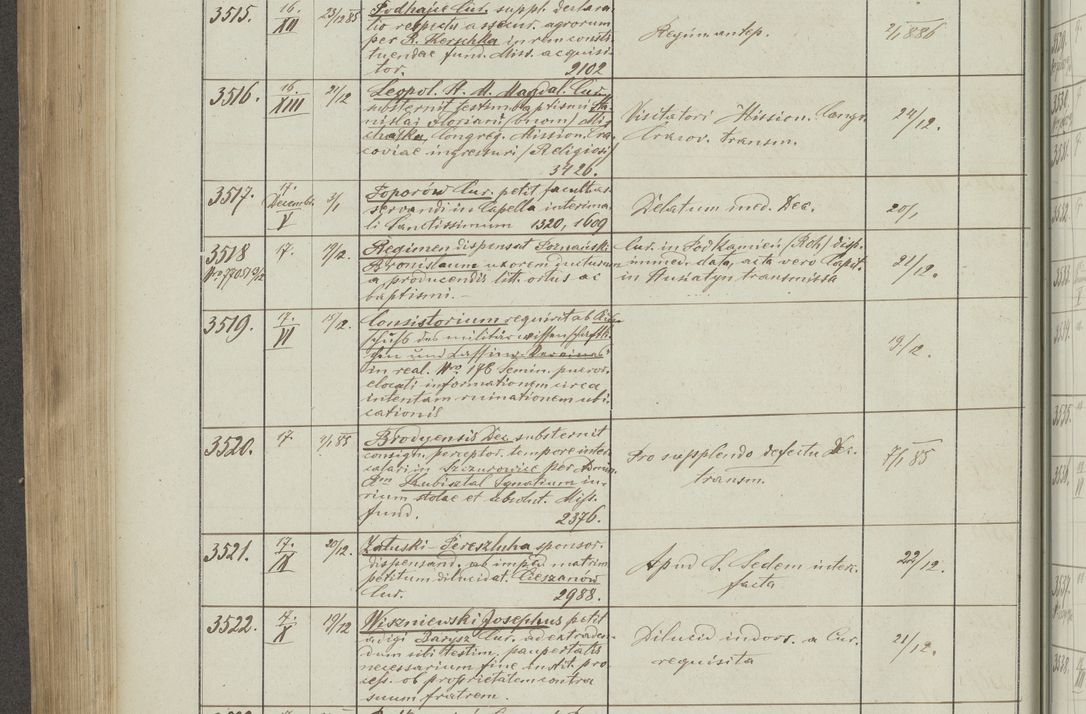 3515. 16. XII 23/12 85 Podhajce Cur. suppl. declara
tio respectu assecur. agrorum
per R. Herschka in rem consti
tuendae fund. Miss. acquisi
tor. 2102
Regim. antep.
2/1 886
3516. 16. XIII 21/12 Leopol. St. M. Magdal. Cur.
substernit testim. baptismi Sta
nislai Floriani (bnom) Mi
chalska, Congreg. Mission. Cra
coviae ingressuri (Religiosi)
3426.
Visitatori Mission. Congr.
Cracov. transm.
24/12.
3517. 17. Decembr. V 3/1 Toporów Cur. petit facultat.
servandi in Capella interima
li Sanctissimum 1320, 1609
Delatum med. Dec.
20/1
3518 17. 19/2. Regimen dispensat Poznański
Bronislaum uxorem ducturum
a producendis litt. ortus ac
baptismi.—
Cur. in Podkamień (Roh) disp.
immed. data, acta vero Capit.
in Husiatyn transmissa
21/12.
3519. 17. VI 18/2. Consistorium requirit ab Aus
schuß des militär wissenschaftli
chen und Cassino Vereines
in real. Nro 178 Semin. pueror.
elocati informationem circa
intentam ruinationem ubi
cationis
19/12.
3520. 17. 2/1 85 Brodyensis Dec. substernit
consign. perceptor. tempore inter
calari in Szczurowice per Admin.
Kubisztal Ignatium iu
rium stolae et absolut. Miss.
fund. 2376.
Pro supplendo defectu Dec.
transm.
7/1 85
3521. 17. IX 20/12. Załuski - Tereszluha sponsor.
dispensand. ab imped. matrim.
petitum dilucidat. Cieszanów
Cur. 2988.
Apud S. Sedem interc.
facta
22/12.
3522. 17. X 19/12 Wiszniewski Josephus petit
adigi Barysz Cur. ad extraden
dum sibi testim. paupertatis
necessarium fine instit. pro
cess. ob proprietatem contra
suum fratrem.
Dilucid. indors. a Cur.
requisita
21/12.